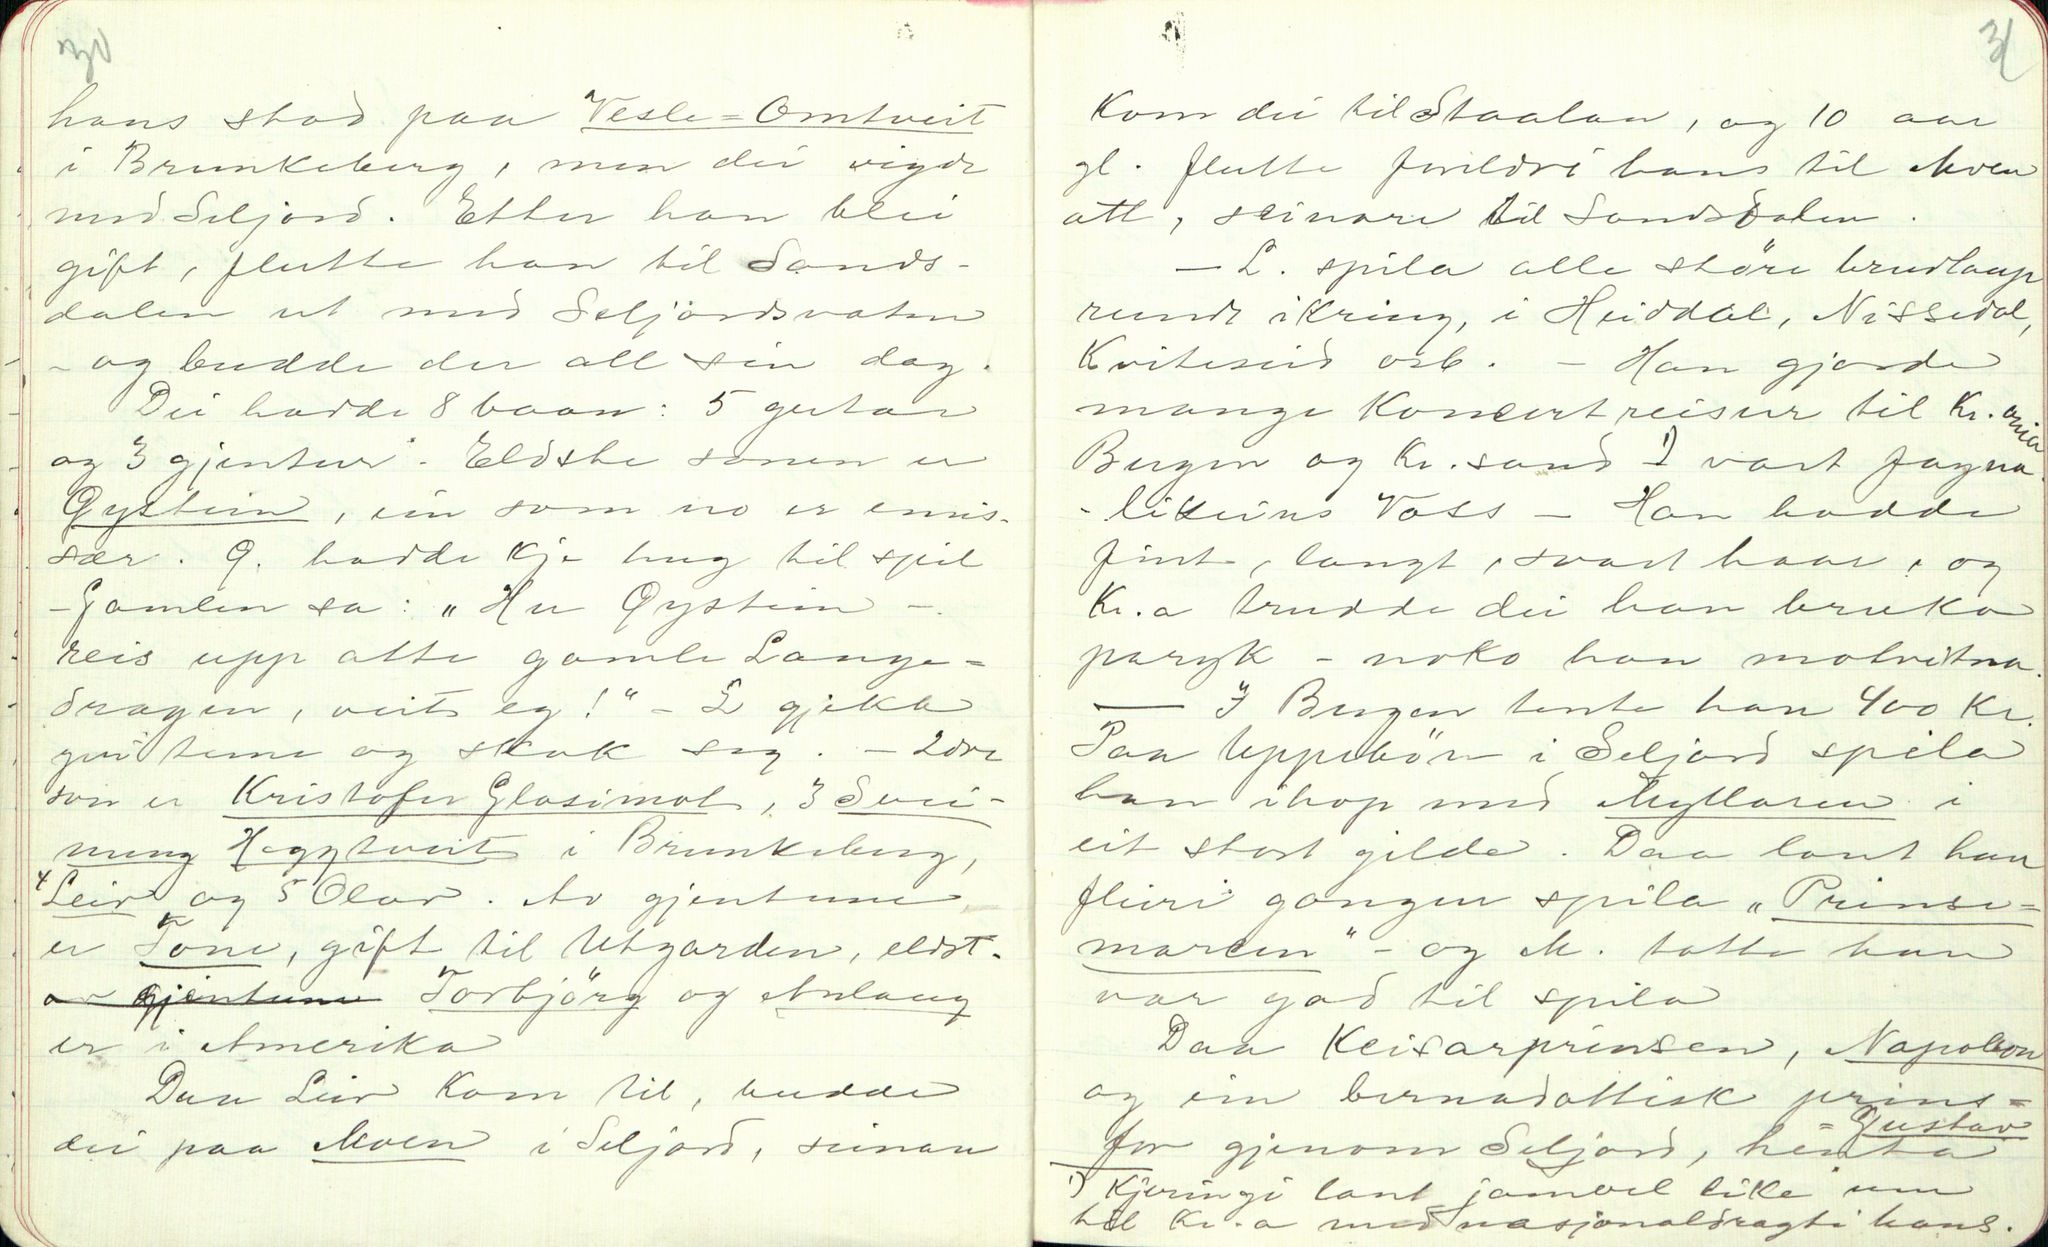 30
hans stod paa Vesle-Omtveit
i Brunkeberg, men dei vigde
med Seljord. Etter han blei
gift, flutte han til Sands-
dalen ut med Seljordsvatne
- og budde der all sin dag.
Dei hadde 8 baan: 5 gutar
og 3 gjentur. Eldste sonen er
Øystein, ein som no er emis-
sær. Ø. hadde kje hug til spil
- Gamlen sa: "Hu Øystein -
reis upp atte gamle Lange-
dragen, veit eg!" - L gjekk
gvi tune og skok seg. - 2dre
son er Kristofer Glosimot, 3 Svei-
nung Heggtveit i Brunkeberg,
4 Leiv og 5 Olav. Av gjentune
er Tone, gift til Utgarden, eldst.
av gjentune Torbjörg og Aslaug
er i Amerika
Daa Leiv kom til, budde
dei paa Moen i Seljord, seinare
31
kom dei til Staalan, og 10 aar
gl. flutte foreldri hans til Moen
att, seinare til Sandsdalen.
- L. spila alle störe brudlaup
rundt ikring, i Heiddal, Nissedal,
Kviteseid osb. - Han gjorde
mange koncertreisur til Kr.ania
Bergen og Kr.sand 1) vart fagna
- likeins Voss - Han hadde
fint, langt, svart haar, og
Kr.a trudde dei han bruka
paryk - noko han motvitna.
- I Bergen tente han 400 Kr.
Paa Uppeböen i Seljord spila
han ihop med Myllaren i
eit stort gilde. Daa laut han
fleiri gangur spila "Prinse-
marsen" - og M. totte han
var god til spila
Daa Keisarprinsen, Napoleon
og ein bernadottisk prins -
= Gustav
for gjenom Seljord, henta
1) Kjeringi laut jamvel like um
til Kr.a med nasjonaldragti hans.